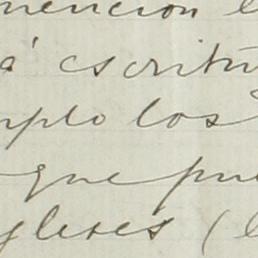 mención e
á escritu
mplo los
que pu
gleses (